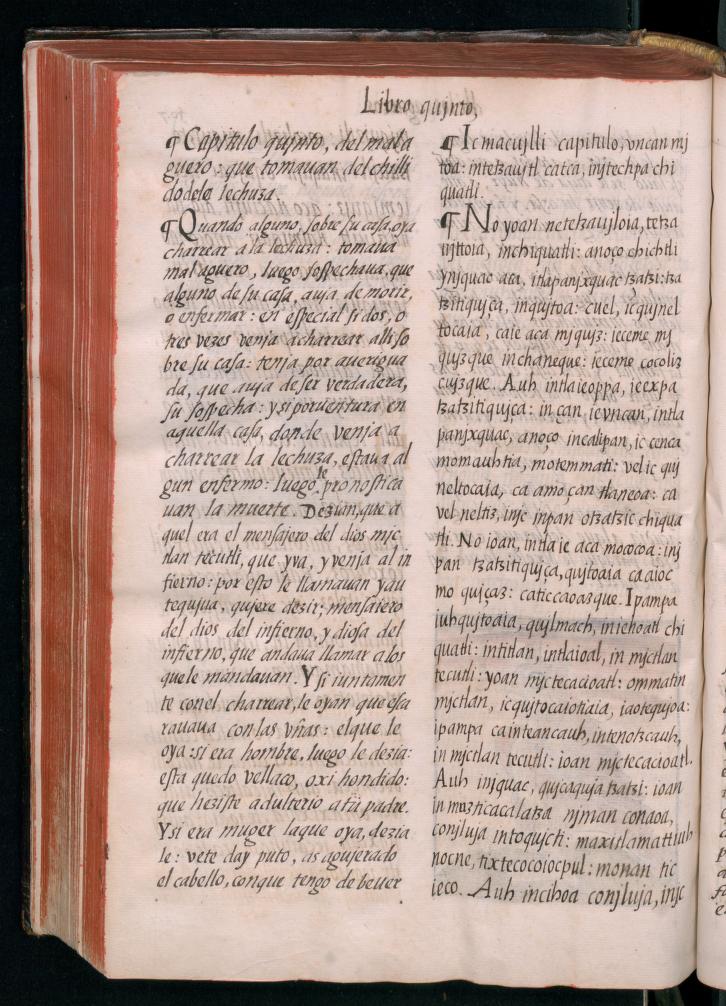 Libro qujnto,
¶ Capitulo qujnto, del mala
guero: que tomauan del chilli
do de la lechuza.
¶ Quando alguno, sobre su casa, oya
charrear a la lechuza: tomaua
mal aguero, luego sospechaua, que
alguno de su casa, auja de morir,
o enfermar: en especial si dos, o
tres vezes venja acharrear alli so
bre su casa: tenja por aueriqua
da, que auja de ser verdadera,
su sospecha: y si por uentura en
aquella casa, donde venja a
charrear la lechuza, estaua al
gun enfermo: luego le pronostica
uan la muerte. Dezian, que a
quel era el mensajero del dios mjc
tlan tecutli, que yva, y venja al in
fierno: por esto le llamauan yau
tequjua, qujere dezir; mensaiero
del dios del infierno, y diosa del
infierno, que andaua llamar a los
que le mandauan. Y si iuntamen
te con el charrear, le oyan que esca
rauaua con las vñas: el que le
oya: si era hombre, luego le dezia:
esta quedo vellaco, oxihondido:
que heziste adulterio a tu padre.
Y si era muger la que oya, dezia
le: vete day puto, as agujerado
el cabello, con que tengo de beuer
¶ Ic macujlli capitulo, vncan mj
toa: intetzaujtl catca, injtechpa chi
quatli.
¶ No yoan netetzaujloia, tetza
ujttoia, in chiquatli: anoço chichtli
ynjquac aca, itlapanjxquac tzatzi: tza
tzitiqujça, inqujtoa: cuel, icqujnel
tocaia, caie aca mjqujz: ieceme mj
qujzque in chaneque: ieceme cocoliz
cujzque. Auh intlaieoppa, ieexpa
tzatzitiqujça: in çan ievncan, intla
panjxquac, anoço incalipan, ic cenca
momauhtia, motemmati: vel ic quj
neltocaia, ca amo çan tlaneoa: ca
vel neltiz, injc inpan otzatzic chiqua
tli. No ioan, intla ie aca mococoa: inj
pan tzatzitiqujça, qujtoaia ca aioc
mo quiçaz: caticcaoazque. Ipampa
iuhqujtoaia, qujlmach, in iehoatl chi
quatli: intitlan, intlaioal, in mjctlan
tecutli: yoan mjctecacioatl: ommatin
mjctlan, icqujtocaiotiaia, iaotequjoa:
ipampa ca inteancauh, intenotzcauh,
in mjctlan tecutli: ioan mjctecacioatl.
Auh injquac, qujcaquja tzatzi: ioan
in mozticacalatza njman conaoa,
conjluja intoqujchti: maxitlamattiuh
nocne, tixtecocoiocpul: monan tic
ieco. Auh incihoa conjluja, injc